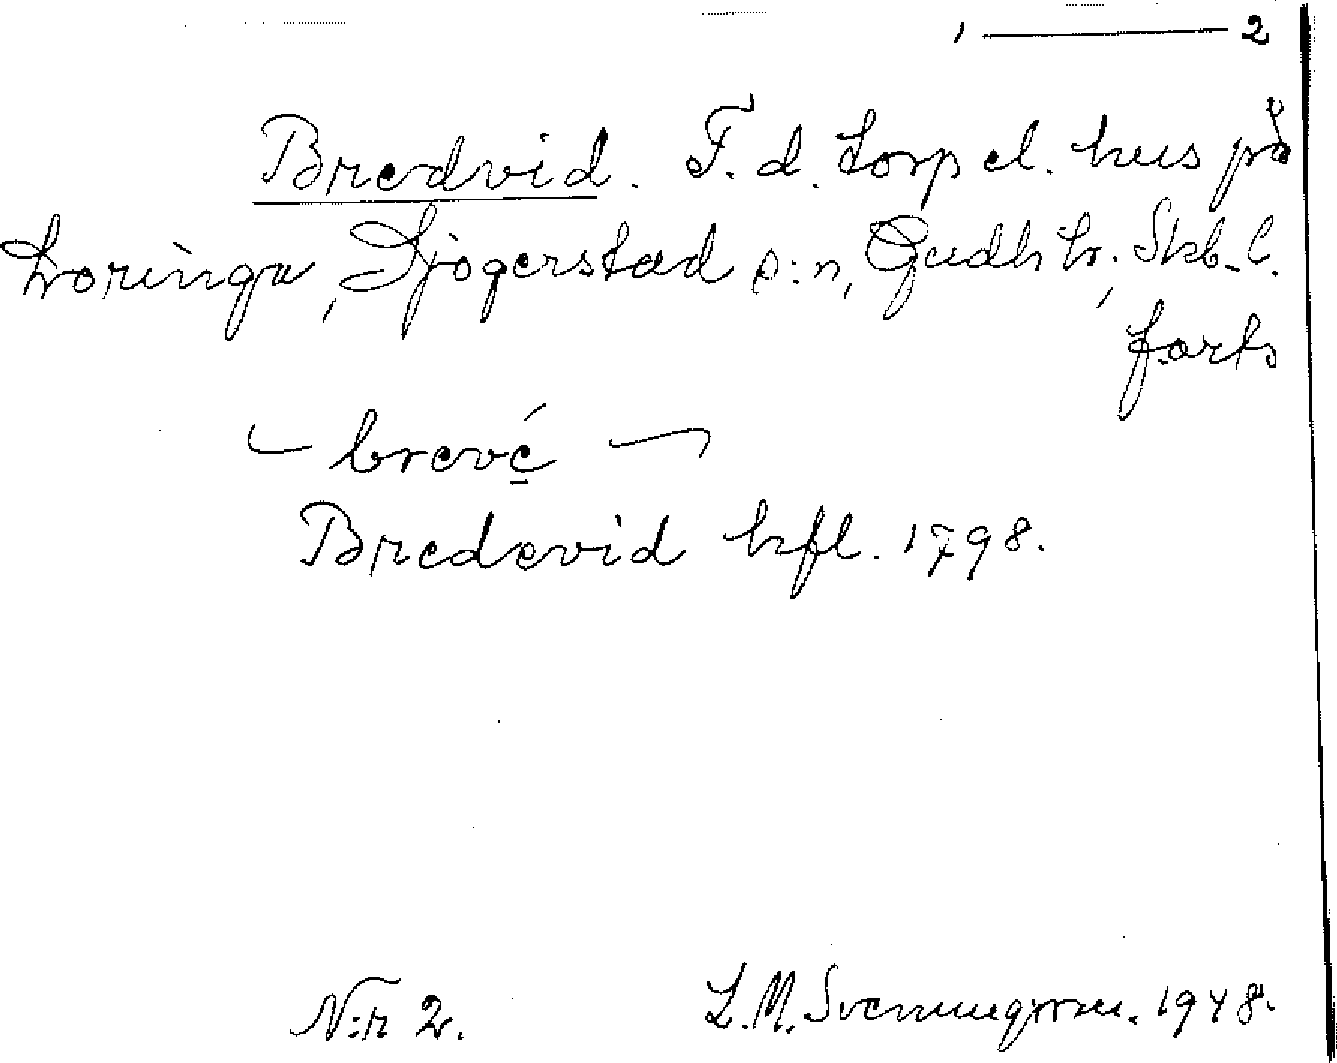 1 — 2
Bredvid. F.d. torp el. hus på
Loringa, Sjogerstad s:n, Gudh hr, Skb. l.
forts
– brevé –
Bredevid hfl. 1798.
N:r 2. L.M. Svenungsson. 1948.